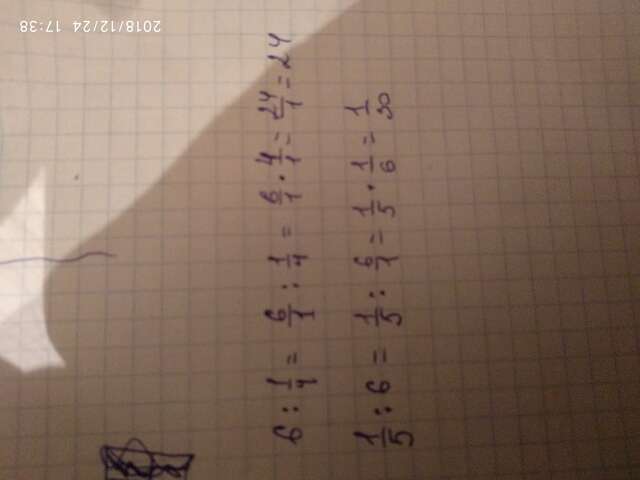 6 : 1/4 = 6/1 : 1/4 = 6/1 · 4/1 = 24/1 = 24
1/5 : 6 = 1/5 : 6/1 = 1/5 · 1/6 = 1/30
2018/12/24 17:38